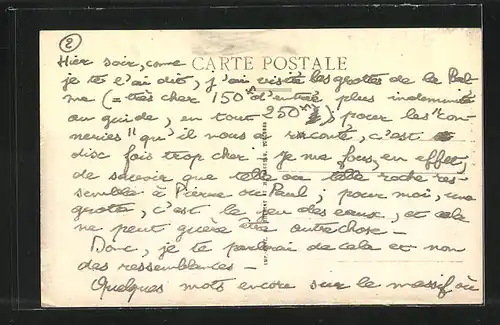 2
CARTE POSTALE
Hier soir, comme
je te l'ai dit, j'ai visité les grottes de la Bal-
me (= très cher 150 f d'entrée plus indemnité
au guide, en tout 250 f) pour les "con-
neries" qu'il nous a raconté, c'est
dix fois trop cher - je me fous, en effet,
de savoir que telle ou telle roche res-
semble à Pierre ou Paul ; pour moi, une
grotte, c'est le jeu des eaux, et cela
ne peut guère être autre chose -
Donc, je te parlerai de cela et non
des ressemblances -
Quelques mots encore sur le massif où